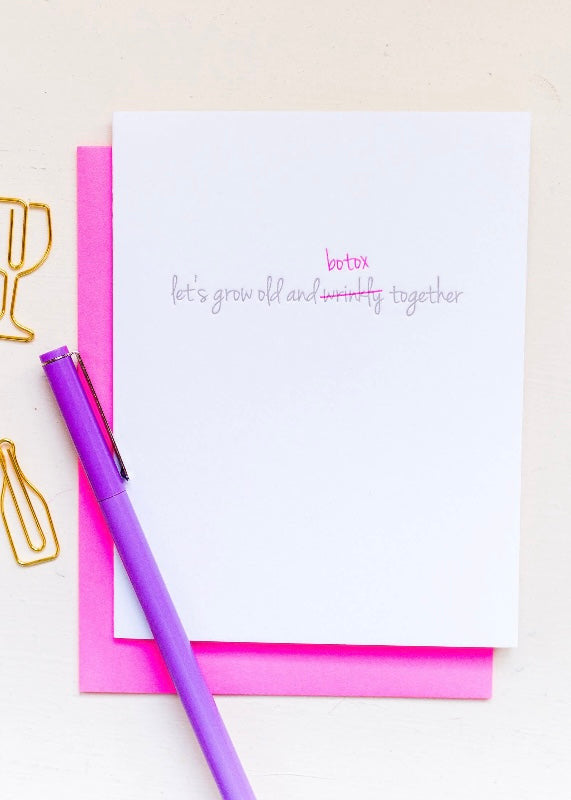 botox
let's grow old and wrinkly together